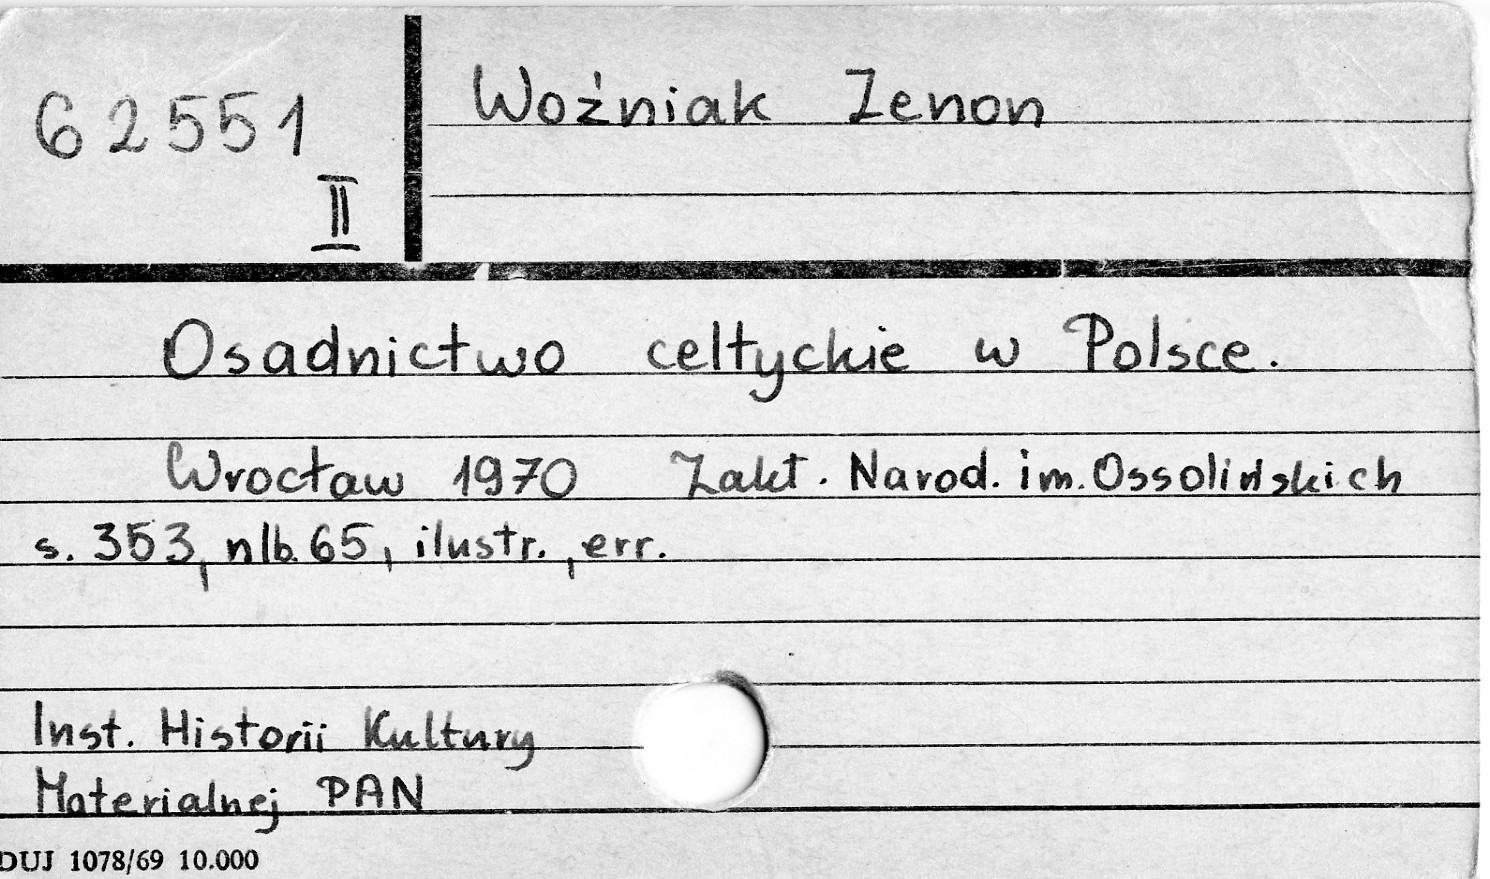 62551
II
Woźniak Zenon
Osadnictwo celtyckie w Polsce.
Wrocław 1970 Zakł. Narod. im. Ossolińskich
s. 353, nlb. 65, ilustr., err.
Inst. Historii Kultury
Materialnej PAN
DUJ 1078/69 10.000